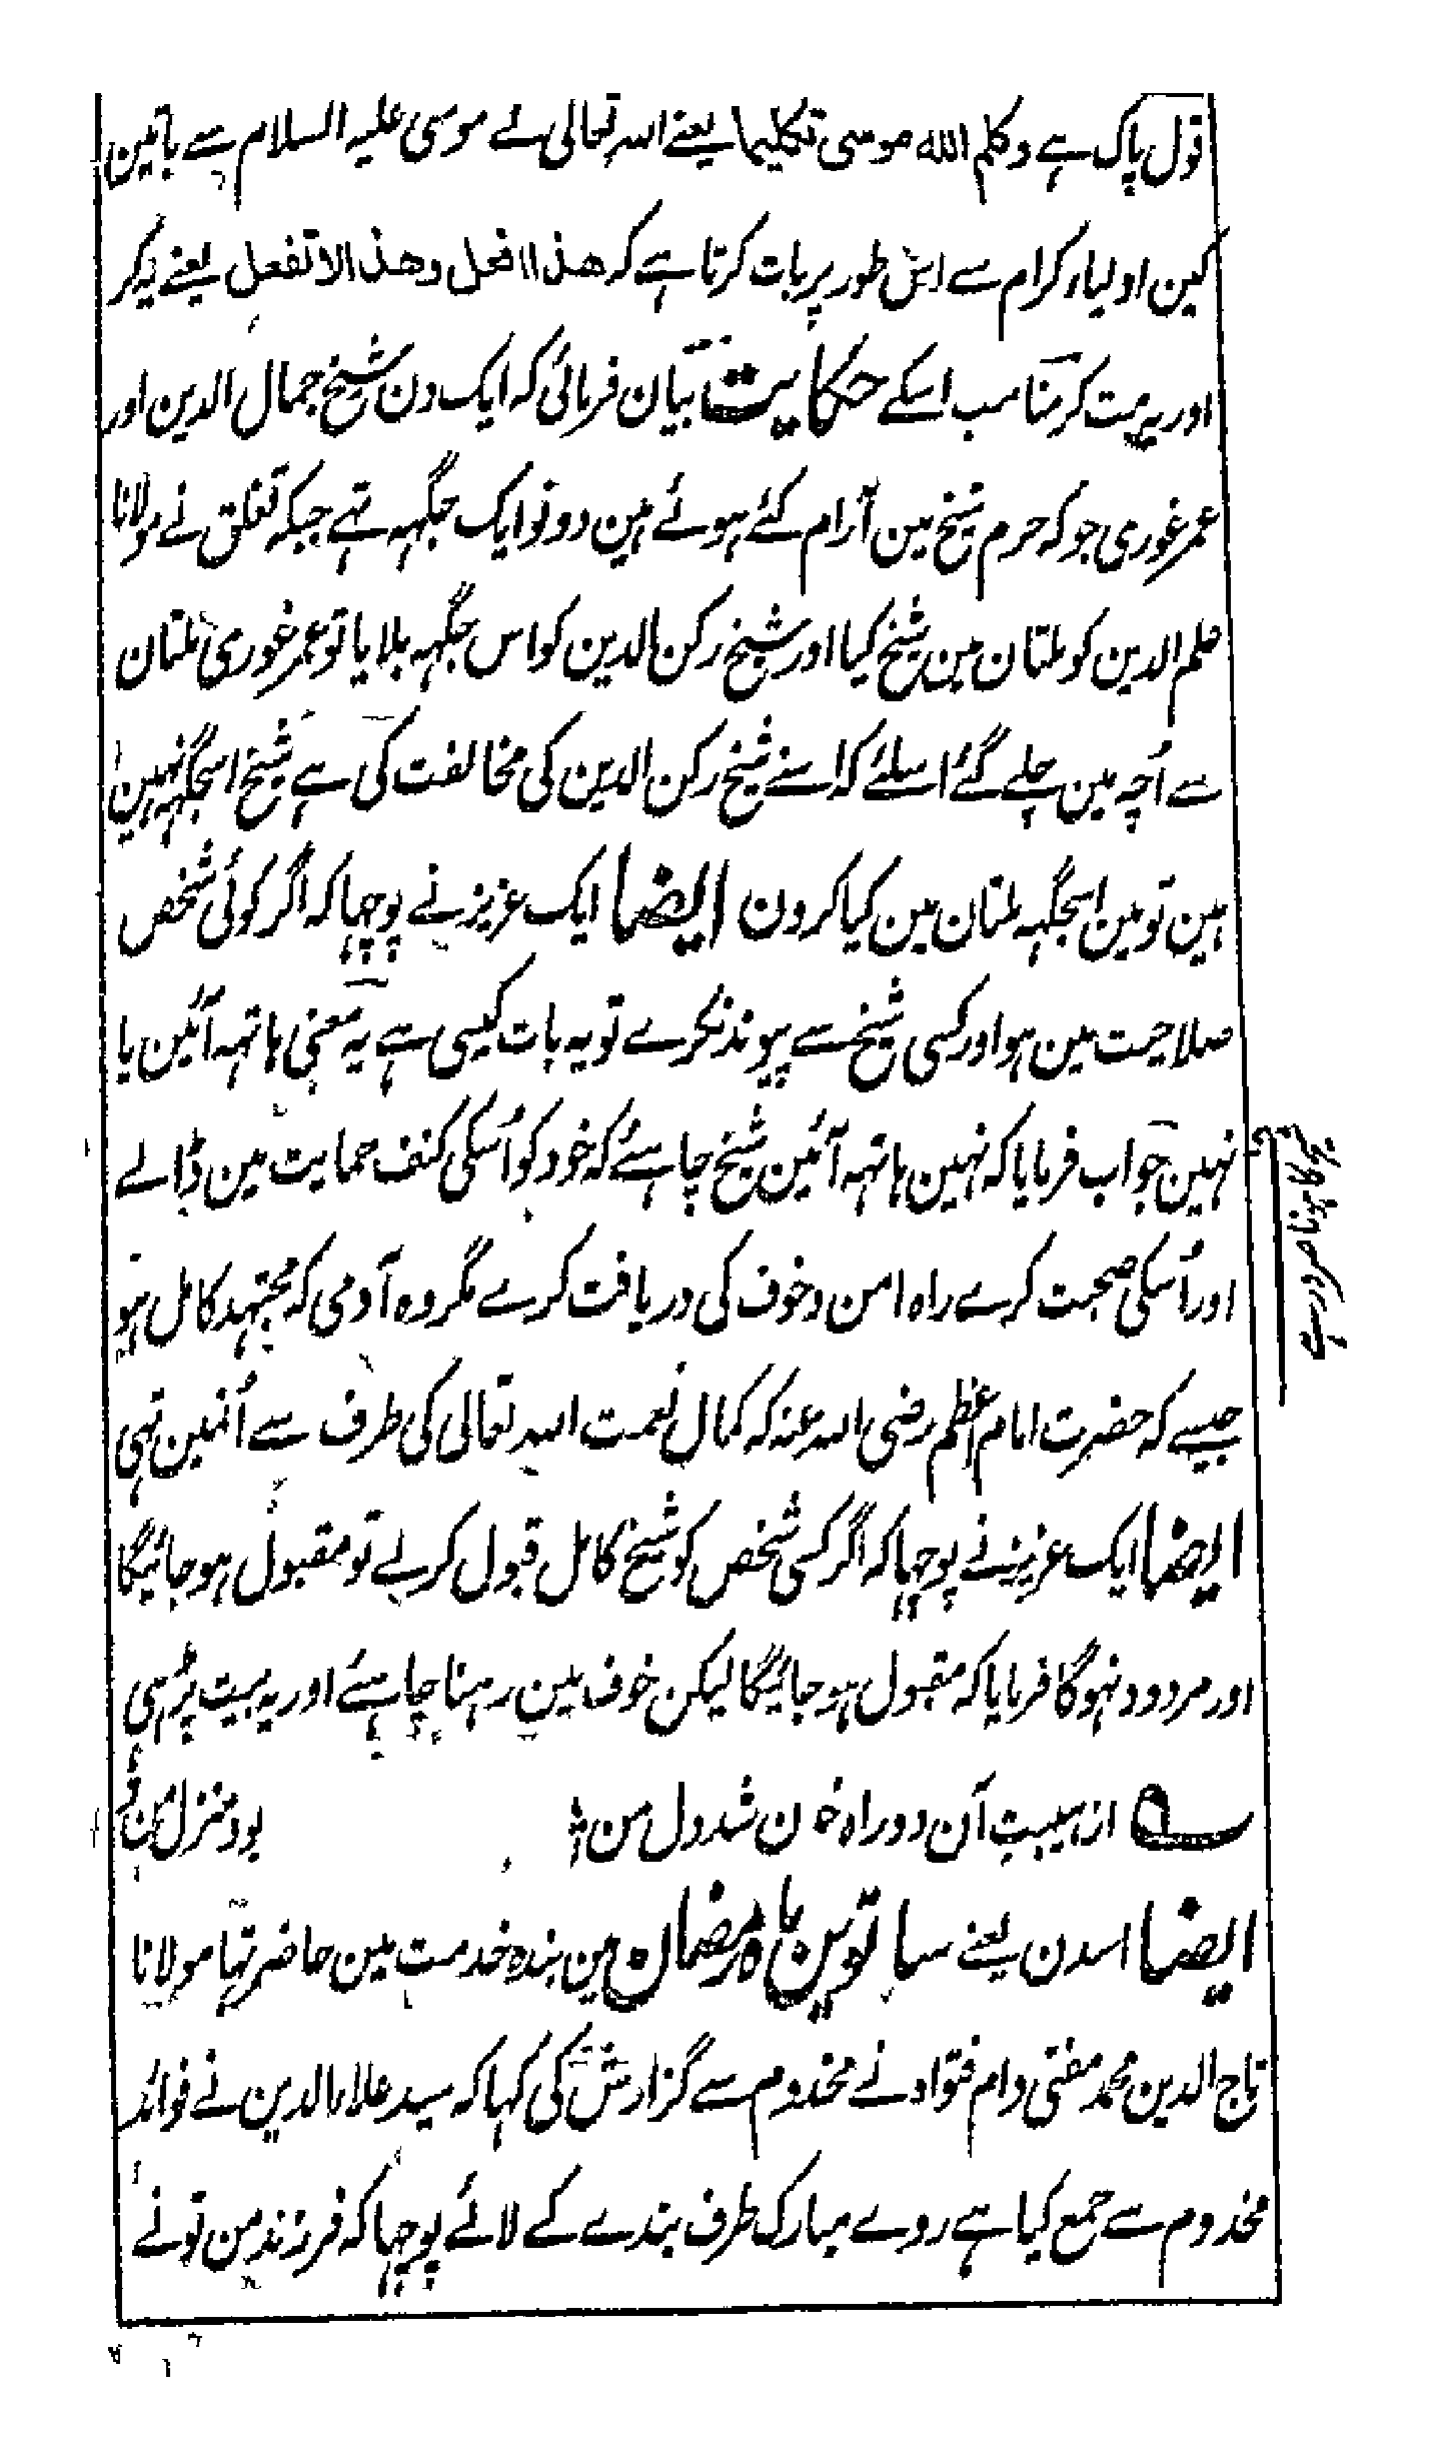 قول پاک ہے وکلم اللہ موسی تکلیما یعنے اللہ تعالی نے موسی علیہ السلام سے باتین
کین اولیاء کرام سے اس طور پر بات کرتا ہے کہ ھذا افعل وھذا لا تفعل یعنے یہ کر
اور یہ مت کر مناسب اسکے حکایت بیان فرمائی کہ ایک دن شیخ جمال الدین اور
عمر غوری جو کہ حرم شیخ مین آرام کئے ہوئے ہین دونو ایک جگہہ تہے جبکہ تغلق نے مولانا
علم الدین کو ملتان مین شیخ کیا اور شیخ رکن الدین کو اس جگہہ بلایا تو عمر غوری ملتان
سے اُچہ مین چلے گئے اسلئے کہ اسنے شیخ رکن الدین کی مخالفت کی ہے شیخ اسجگہہ نہین
ہین تو مین اسجگہہ ملتان مین کیا کرون ایضا ایک عزیز نے پوچہا کہ اگر کوئی شخص
صلاحیت مین ہو اور کسی شیخ سے پیوند نکرے تو یہ بات کیسی ہے یہ معنی ہاتہہ آئین یا
نہین جواب فرمایا کہ نہین ہاتہہ آئین شیخ چاہئے کہ خود کو اُسکی کنف حمایت مین ڈالے
اور اُسکی صحبت کرے راہ امن وخوف کی دریافت کرے مگر وہ آدمی کہ مجتہد کامل ہو
جیسے کہ حضرت امام اعظم رضی اللہ عنہ کہ کمال نعمت اللہ تعالی کی طرف سے اُنمین تہی
ایضا ایک عزیز نے پوچہا کہ اگر کسی شخص کو شیخ کامل قبول کر لے تو مقبول ہو جائیگا
اور مردود نہوگا فرمایا کہ مقبول ہو جائیگا لیکن خوف مین رہنا چاہئے اور یہ بیت پڑہی
از ہیبت آن دو راہ خون شد دل من بود منزل من
ایضا اسدن یعنے ساتوین ماہ رمضان مین بندہ خدمت مین حاضر تہا مولانا
تاج الدین محمد مفتی دام فتواہ نے مخدوم سے گزارش کی کہا کہ سید علاء الدین نے فوائد
مخدوم سے جمع کیا ہے روے مبارک طرف بندے کے لائے پوچہا کہ فرزند من تو نے
کا ہونا ضرور ہے